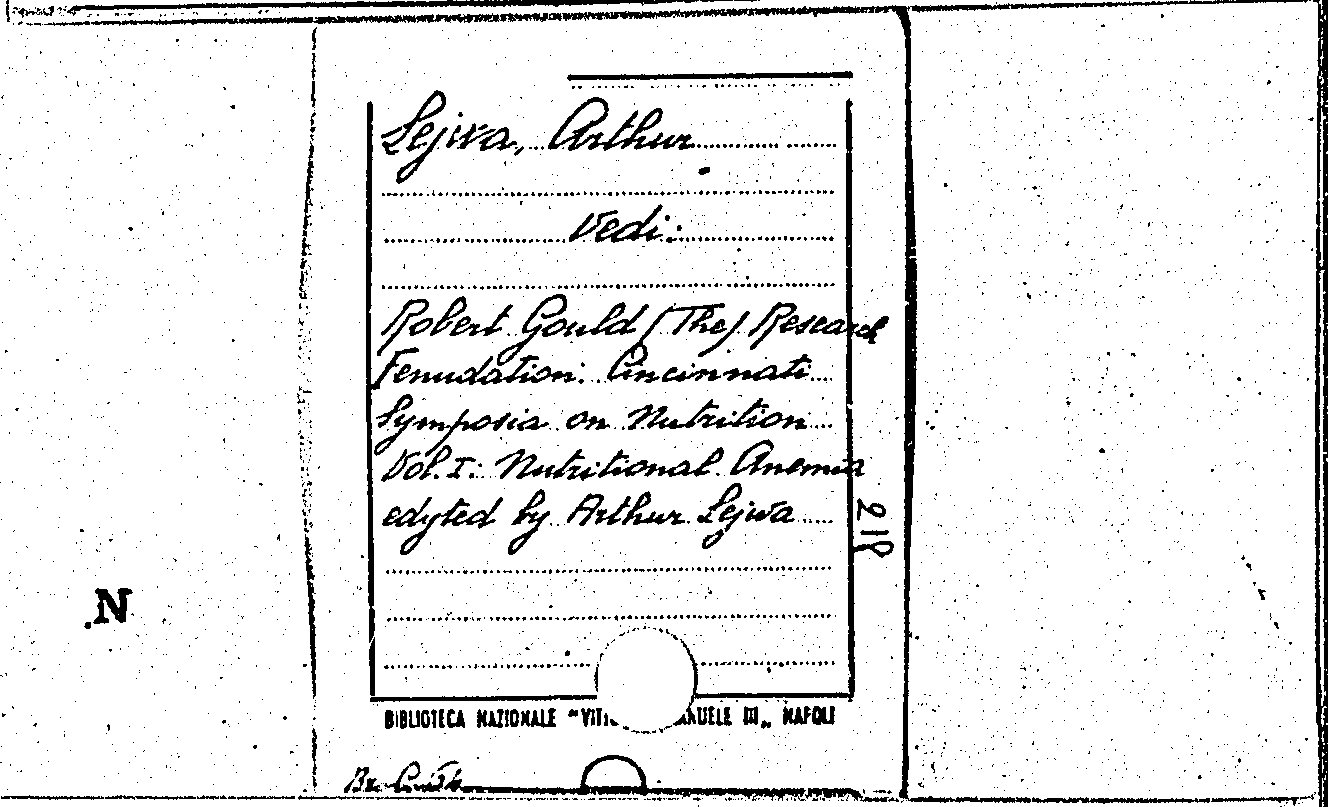 Lejwa, Arthur
Vedi:
Robert Gould (The) Research
Fenudation. Cincinnati
Symposia on Nutrition
Vol. I: Nutritional Anemia
edyted by Arthur Lejwa
218
.N
BIBLIOTECA NAZIONALE "VITT ANUELE III„ NAPOLI